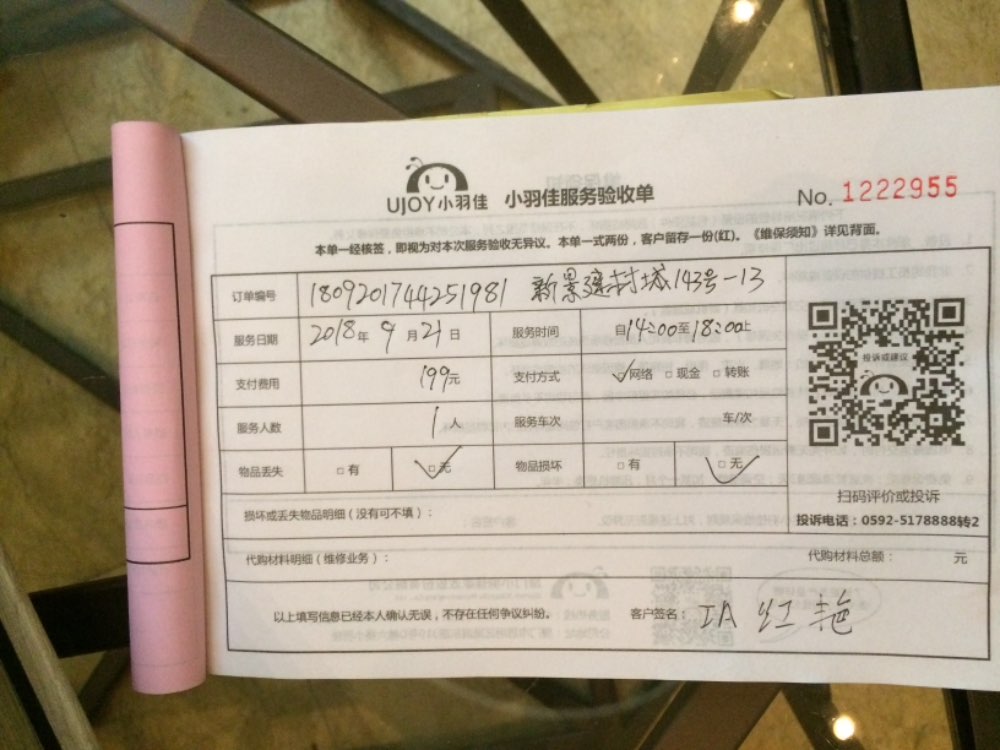 UJOY小羽佳 小羽佳服务验收单 No. 1222955
本单一经核签，即视为对本次服务验收无异议。本单一式两份，客户留存一份(红)。《维保须知》详见背面。
订单编号 1809201744251981 新景建村城143号-13
服务日期 2018年9月21日 服务时间 自14:00至18:00止
支付费用 199元 支付方式 ☑网络 □现金 □转账
投诉或建议
服务人数 1人 服务车次 车/次
物品丢失 □有 ☑无 物品损坏 □有 ☑无
扫码评价或投诉
损坏或丢失物品明细（没有可不填）：
投诉电话：0592-5178888转2
代购材料明细（维修业务）： 代购材料总额： 元
以上填写信息已经本人确认无误，不存在任何争议纠纷。 客户签名： 红艳